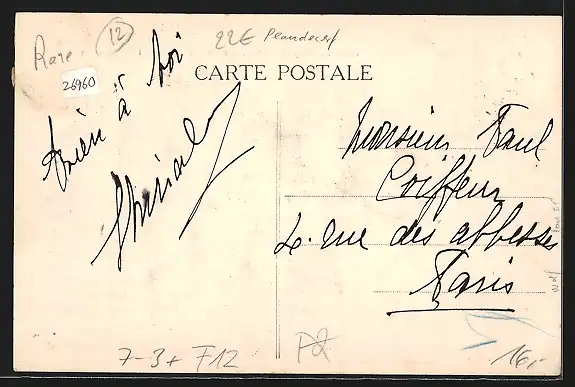 Rare
12
22E
26960
CARTE POSTALE
Bien à toi
Monsieur Paul
Coiffeur
4. rue des abbesses
Paris
7-3+ F12
16,-